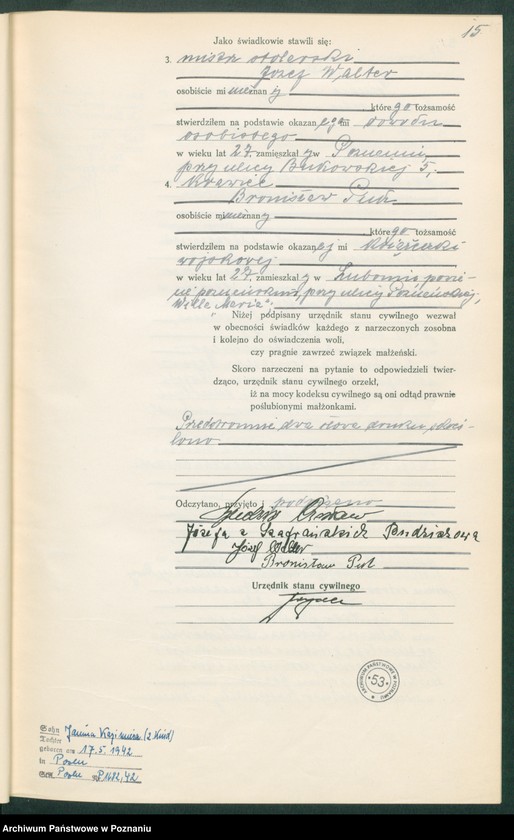 15
Jako świadkowie stawili się:
3. mistrz stolarski
Józef Walter
osobiście mi nieznany
którego tożsamość
stwierdziłem na podstawie okazanego mi dowodu
osobistego
w wieku lat 27, zamieszkały w Poznaniu
przy ulicy Bukowskiej 5,
4. krawiec
Bronisław
osobiście mi nieznany
którego tożsamość
stwierdziłem na podstawie okazanej mi książeczki
wojskowej
w wieku lat 27, zamieszkały w Luboniu powie-
cie poznańskim, przy ulicy Poznańskiej,
Willa Maria".
Niżej podpisany urzędnik stanu cywilnego wezwał
w obecności świadków każdego z narzeczonych zosobna
i kolejno do oświadczenia woli,
czy pragnie zawrzeć związek małżeński.
Skoro narzeczeni na pytanie to odpowiedzieli twier-
dząco, urzędnik stanu cywilnego orzekł,
iż na mocy kodeksu cywilnego są oni odtąd prawnie
poślubionymi małżonkami.
Przedstronnie dwa słowa druku skreś-
lono
Odczytano, przyjęto i podpisano
Józefa z Pendziakowa
Józef Walter
Bronisław
Urzędnik stanu cywilnego
ARCHIWUM PAŃSTWOWE W POZNANIU
53
Sohn
Tochter Janina Kazimiera (2. Kind)
geboren am 17.5.1942
in Posen
Posen P1682/42
Archiwum Państwowe w Poznaniu